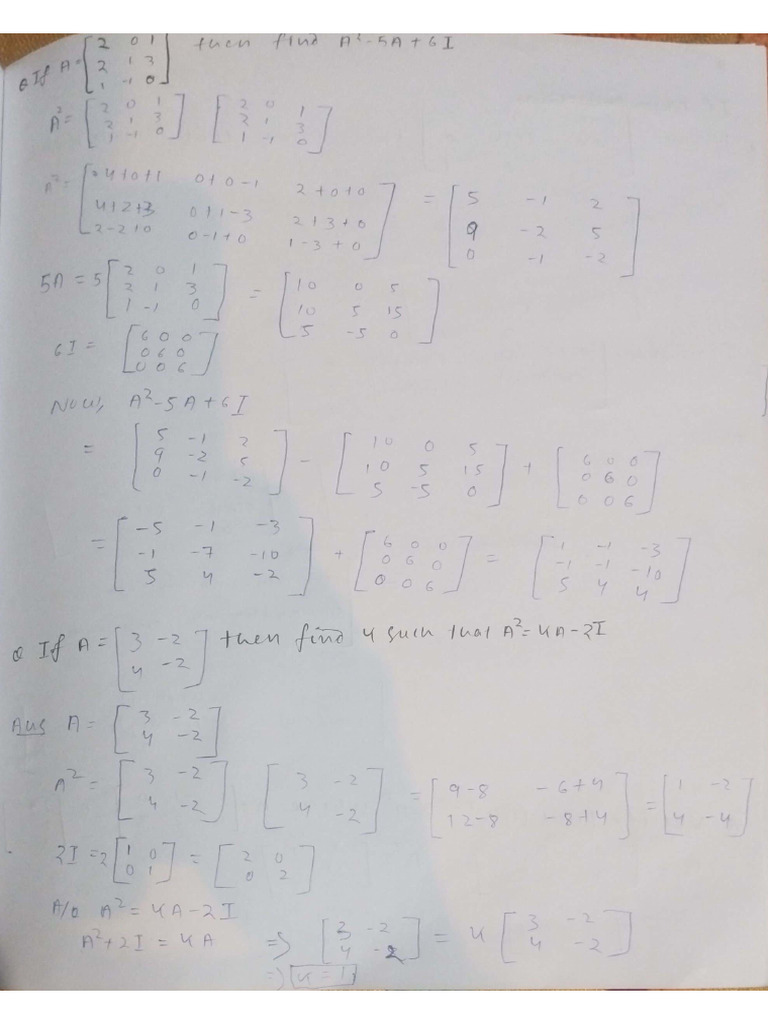 Q If A = [2 0 1; 2 1 3; 1 -1 0] then find A²-5A+6I
A² = [2 0 1; 2 1 3; 1 -1 0] [2 0 1; 2 1 3; 1 -1 0]
A² = [4+0+1 0+0-1 2+0+0; 4+2+3 0+1-3 2+3+0; 2-2+0 0-1+0 1-3+0] = [5 -1 2; 9 -2 5; 0 -1 -2]
5A = 5 [2 0 1; 2 1 3; 1 -1 0] = [10 0 5; 10 5 15; 5 -5 0]
6I = [6 0 0; 0 6 0; 0 0 6]
Now, A²-5A+6I
= [5 -1 2; 9 -2 5; 0 -1 -2] - [10 0 5; 10 5 15; 5 -5 0] + [6 0 0; 0 6 0; 0 0 6]
= [-5 -1 -3; -1 -7 -10; 5 4 -2] + [6 0 0; 0 6 0; 0 0 6] = [1 -1 -3; -1 -1 -10; 5 4 4]
Q If A = [3 -2; 4 -2] then find k such that A² = kA-2I
Ans A = [3 -2; 4 -2]
A² = [3 -2; 4 -2] [3 -2; 4 -2] = [9-8 -6+4; 12-8 -8+4] = [1 -2; 4 -4]
2I = 2 [1 0; 0 1] = [2 0; 0 2]
A/Q A² = kA-2I
A²+2I = kA ⇒ [3 -2; 4 -2] = k [3 -2; 4 -2]
⇒ k = 1